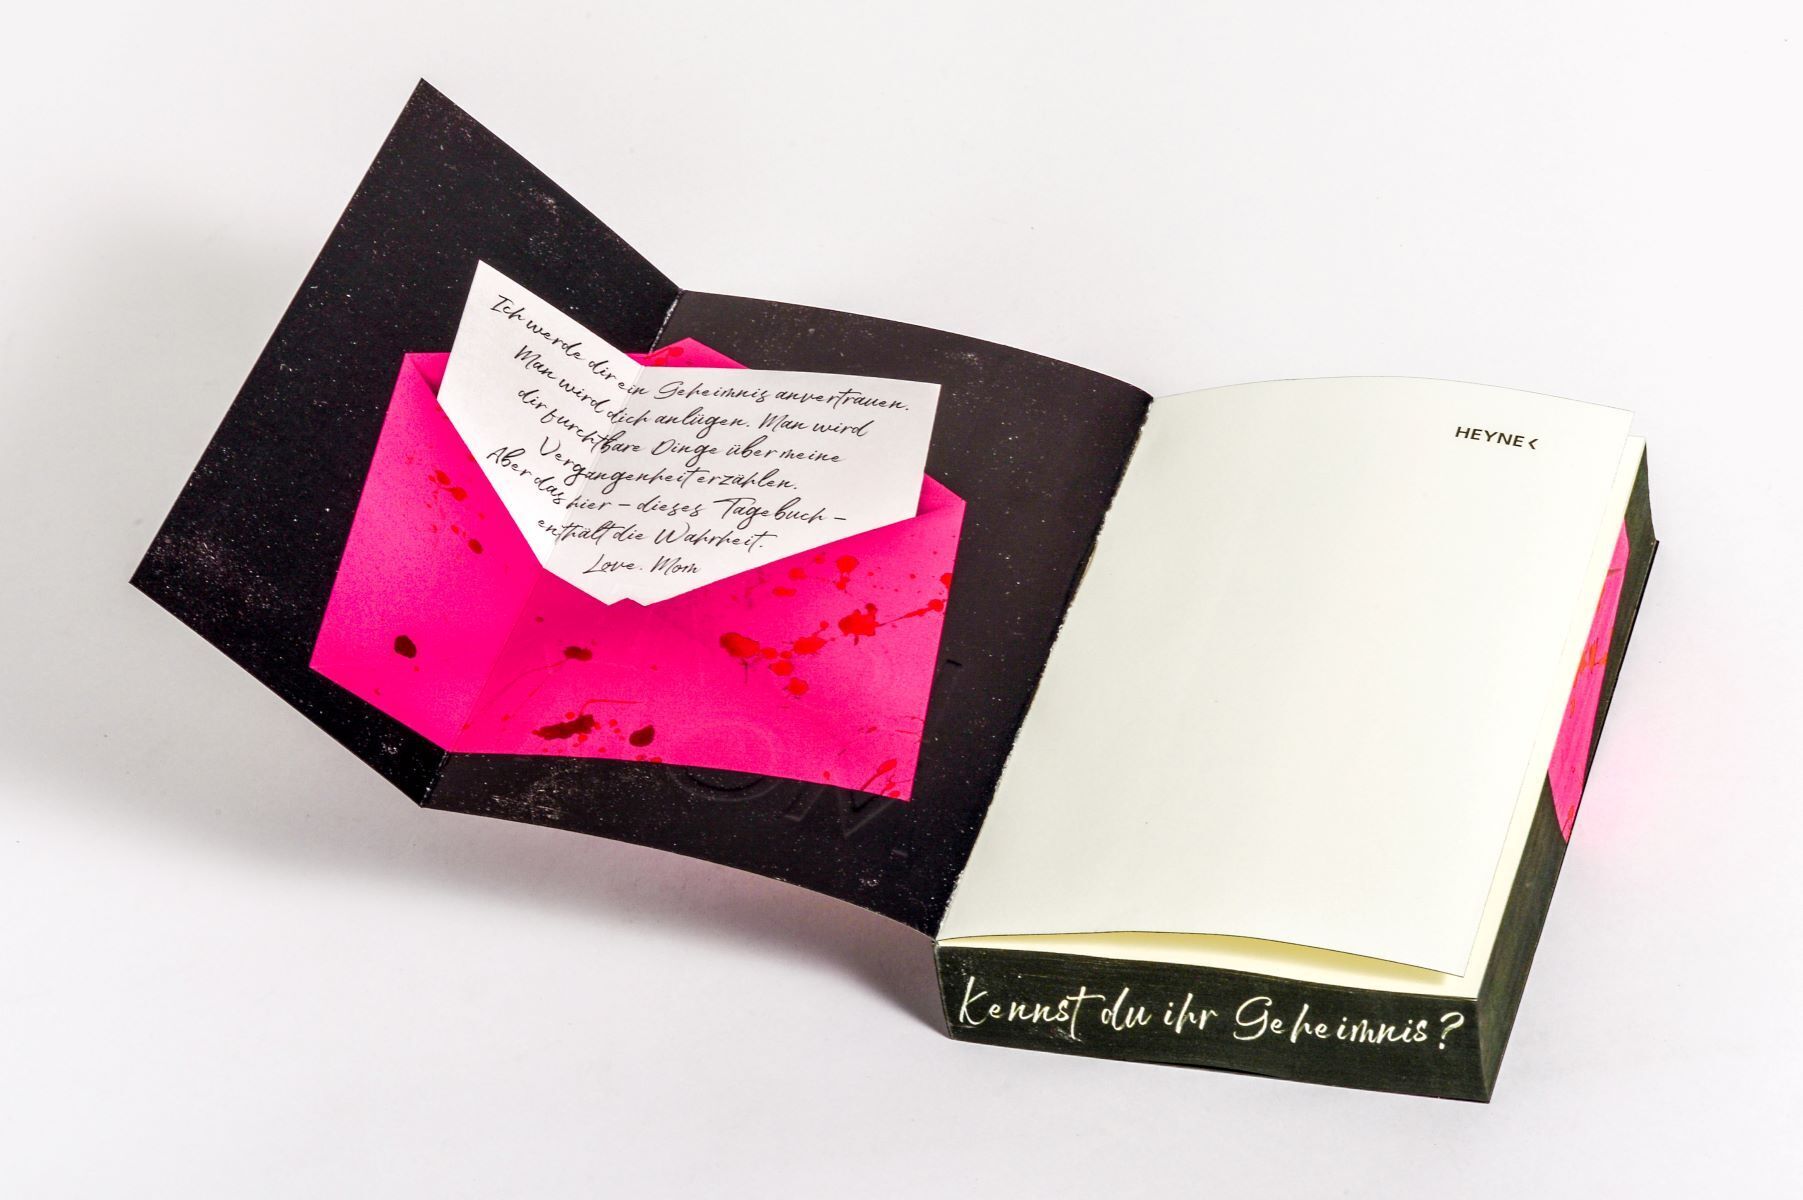 Ich werde dir ein Geheimnis anvertrauen.
Man wird dich anlügen. Man wird
dir furchtbare Dinge über meine
Vergangenheit erzählen.
Aber das hier – dieses Tagebuch –
enthält die Wahrheit.
Love. Mom
HEYNE<
Kennst du ihr Geheimnis?